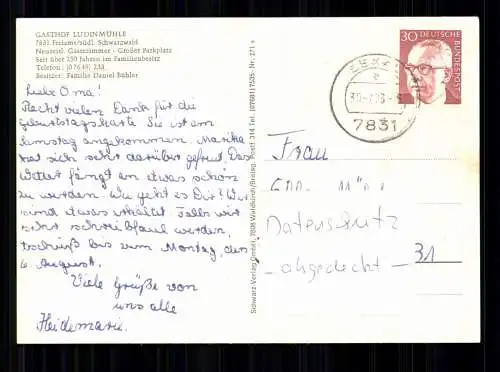 GASTHOF LUDINMÜHLE
7831 Freiamt/südl. Schwarzwald
Neuzeitl. Gästezimmer - Großer Parkplatz
Seit über 150 Jahren im Familienbesitz
Telefon: (07645) 233
Besitzer: Familie Daniel Bühler
Liebe Oma!
Recht vielen Dank für die
Geburtstagskarte Sie ist am
Samstag angekommen. Marika
hat sich sehr darüber gefreut. Das
Wetter fängt an etwas schön
zu werden. Wie geht es Dir? Wir
sind etwas erkältet. Falls wir
sehr schreibfaul werden,
tschüß bis zum Montag, den
6. August.
Viele Grüße von
uns alle
Heidemarie.
Schwarz-Verlag GmbH, 7808 Waldkirch/Breisg. Postf. 314 Tel. (07681) 7535 - Nr. 271 s
30 DEUTSCHE
BUNDESPOST
7831
Frau
Datenschutz
abgedeckt
31